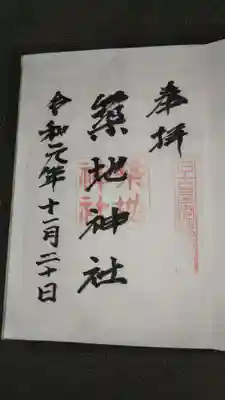 奉拝
築地神社
築地神社
令和元年十一月二十日